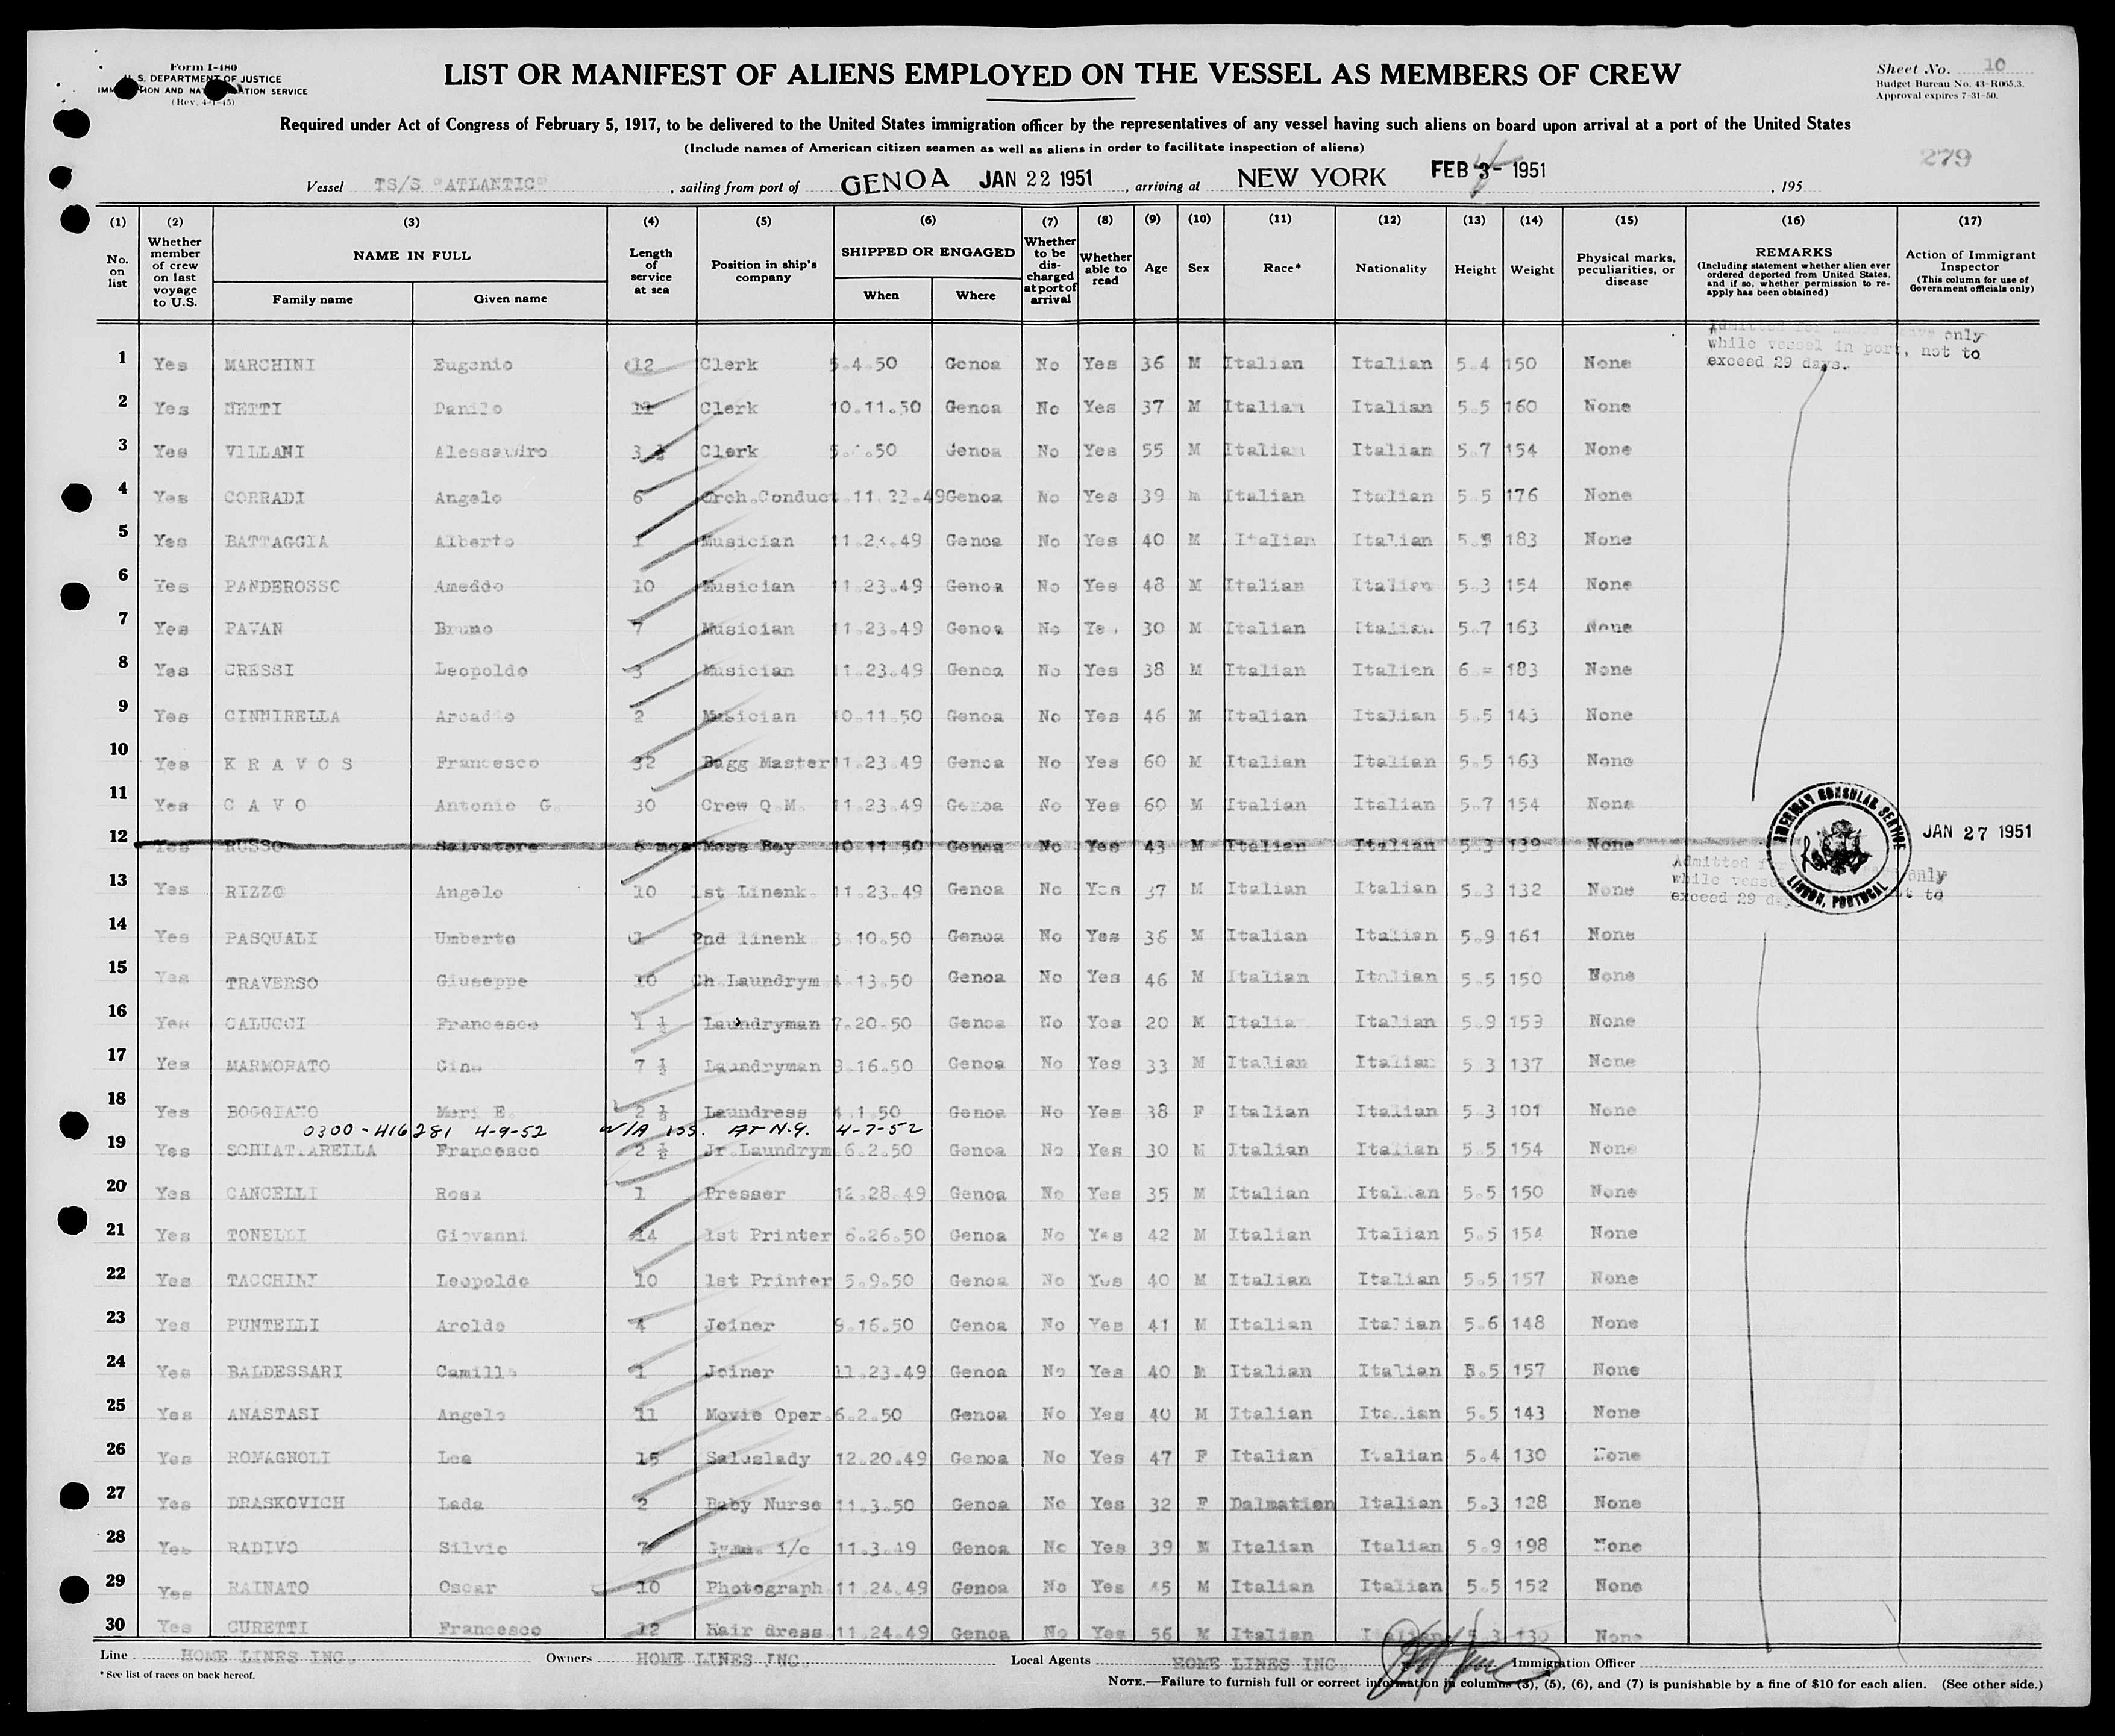 Form I-480
U. S. DEPARTMENT OF JUSTICE
IMMIGRATION AND NATURALIZATION SERVICE
(Rev. 4-1-45)
LIST OR MANIFEST OF ALIENS EMPLOYED ON THE VESSEL AS MEMBERS OF CREW
Sheet No. 10
Budget Bureau No. 43-R065.3.
Approval expires 7-31-50.
Required under Act of Congress of February 5, 1917, to be delivered to the United States immigration officer by the representatives of any vessel having such aliens on board upon arrival at a port of the United States
(Include names of American citizen seamen as well as aliens in order to facilitate inspection of aliens)
279
Vessel TS/S "ATLANTIC" , sailing from port of GENOA JAN 22 1951 , arriving at NEW YORK FEB 3- 4 1951 , 195
(1) (2) (3) (4) (5) (6) (7) (8) (9) (10) (11) (12) (13) (14) (15) (16) (17)
No. on list
Whether member of crew on last voyage to U.S.
NAME IN FULL
Family name
Given name
Length of service at sea
Position in ship's company
SHIPPED OR ENGAGED
When
Where
Whether to be discharged at port of arrival
Whether able to read
Age
Sex
Race*
Nationality
Height
Weight
Physical marks, peculiarities, or disease
REMARKS
(Including statement whether alien ever ordered deported from United States, and if so, whether permission to reapply has been obtained)
Action of Immigrant Inspector
(This column for use of Government officials only)
only
while vessel in port, not to
exceed 29 days.
1 Yes MARCHINI Eugenio 12 Clerk 5.4.50 Genoa No Yes 36 M Italian Italian 5.4 150 None
2 Yes NETTI Danilo Clerk 10.11.50 Genoa No Yes 37 M Italian Italian 5.5 160 None
3 Yes VILLANI Alessandro 3 Clerk 50 Genoa No Yes 55 M Italian Italian 5.7 154 None
4 Yes CORRADI Angelo 6 Orch.Conduct. 11.22.49 Genoa No Yes 39 m Italian Italian 5.5 176 None
5 Yes BATTAGGIA Alberto 1 Musician 11.23.49 Genoa No Yes 40 M Italian Italian 5.5 183 None
6 Yes PANDEROSSO Ameddo 10 Musician 11.23.49 Genoa No Yes 48 M Italian Italian 5.3 154 None
7 Yes PAVAN Bruno 7 Musician 11.23.49 Genoa No Yes 30 M Italian Italian 5.7 163 None
8 Yes CRESSI Leopoldo 3 Musician 11.23.49 Genoa No Yes 38 M Italian Italian 6 = 183 None
9 Yes CINNIRELLA Arcadio 2 Musician 10.11.50 Genoa No Yes 46 M Italian Italian 5.5 143 None
10 Yes K R A V O S Francesco 32 Bagg Master 11.23.49 Genoa No Yes 60 M Italian Italian 5.5 163 None
11 Yes C A V O Antonio G. 30 Crew Q.M. 11.23.49 Genoa No Yes 60 M Italian Italian 5.7 154 None
12 Yes RUSSO Salvatore 6 mos Mess Boy 10 11 50 Genoa No Yes 43 M Italian Italian 5.3 139 None
AMERICAN CONSULAR SERVICE
LISBON, PORTUGAL
JAN 27 1951
Admitted for only
while vessel to
exceed 29 days
13 Yes RIZZO Angelo 10 1st Linenk. 11.23.49 Genoa No Yes 37 M Italian Italian 5.3 132 None
14 Yes PASQUALI Umberto 1 2nd linenk 3 10.50 Genoa No Yes 36 M Italian Italian 5.9 161 None
15 Yes TRAVERSO Giuseppe 10 Ch Laundrym 4.13.50 Genoa No Yes 46 M Italian Italian 5.5 150 None
16 Yes CALUCCI Francesco 1 ½ Laundryman 7.20.50 Genoa No Yes 20 M Italia Italian 5.9 159 None
17 Yes MARMORATO Gino 7 ½ Laundryman 3.16.50 Genoa No Yes 33 M Italian Italian 5 3 137 None
18 Yes BOGGIANO Mari E. 2 ½ Laundress 4.1.50 Genoa No Yes 38 F Italian Italian 5.3 101 None
0300-416281 4-9-52 W/A iss. AT N.Y. 4-7-52
19 Yes SCHIATTARELLA Francesco 2 ½ Jr.Laundrym 6.2.50 Genoa No Yes 30 M Italian Italian 5.5 154 None
20 Yes CANCELLI Rosa 1 Presser 12.28.49 Genoa No Yes 35 M Italian Italian 5.5 150 None
21 Yes TONELLI Giovanni 14 1st Printer 6.26.50 Genoa No Yes 42 M Italian Italian 5.5 154 None
22 Yes TACCHINI Leopoldo 10 1st Printer 5.9.50 Genoa No Yes 40 M Italian Italian 5.5 157 None
23 Yes PUNTELLI Aroldo 4 Joiner 9.16.50 Genoa No Yes 41 M Italian Italian 5.6 148 None
24 Yes BALDESSARI Camillo 1 Joiner 11.23.49 Genoa No Yes 40 M Italian Italian 5.5 157 None
25 Yes ANASTASI Angelo 11 Movie Oper. 6.2.50 Genoa No Yes 40 M Italian Italian 5.5 143 None
26 Yes ROMAGNOLI Lea 15 Saleslady 12.20.49 Genoa No Yes 47 F Italian Italian 5.4 130 None
27 Yes DRASKOVICH Lada 2 Baby Nurse 11.3.50 Genoa No Yes 32 F Dalmatian Italian 5.3 128 None
28 Yes RADIVO Silvio 7 i/c 11.3.49 Genoa No Yes 39 M Italian Italian 5.9 198 None
29 Yes RAINATO Oscar 10 Photograph 11.24.49 Genoa No Yes 45 M Italian Italian 5.5 152 None
30 Yes CURETTI Francesco 12 hair dress 11.24.49 Genoa No Yes 56 M Italian Italian 5.3 130 None
Line HOME LINES INC. Owners HOME LINES INC. Local Agents HOME LINES INC. Immigration Officer
* See list of races on back hereof.
NOTE.—Failure to furnish full or correct information in columns (3), (5), (6), and (7) is punishable by a fine of $10 for each alien. (See other side.)